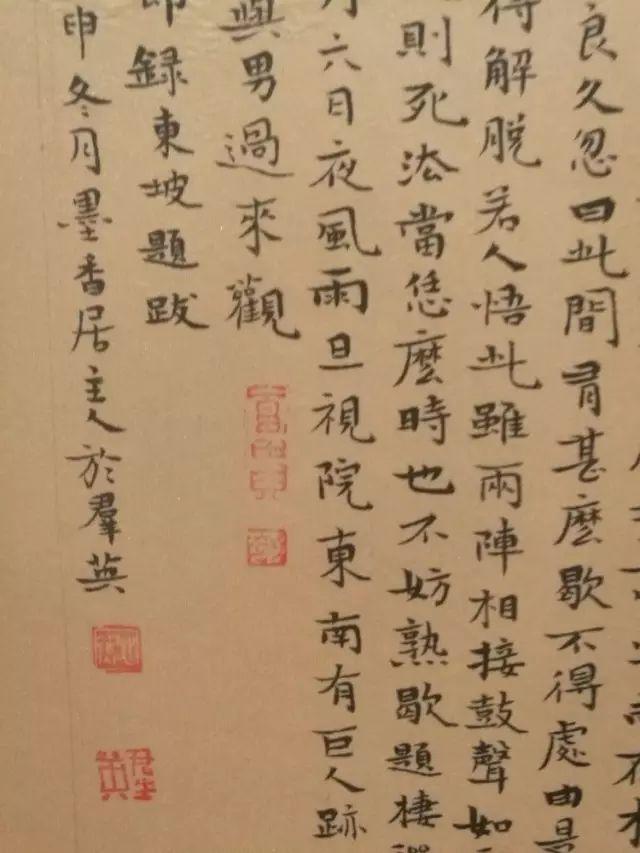 良久忽曰此間有甚麼歇不得處由是
得解脫若人悟此雖兩陣相接鼓聲如
則死法當恁麼時也不妨熟歇題棲
月六日夜風雨旦視院東南有巨人跡
與男過來觀
錄東坡題跋
申冬月墨香居主人於羣英